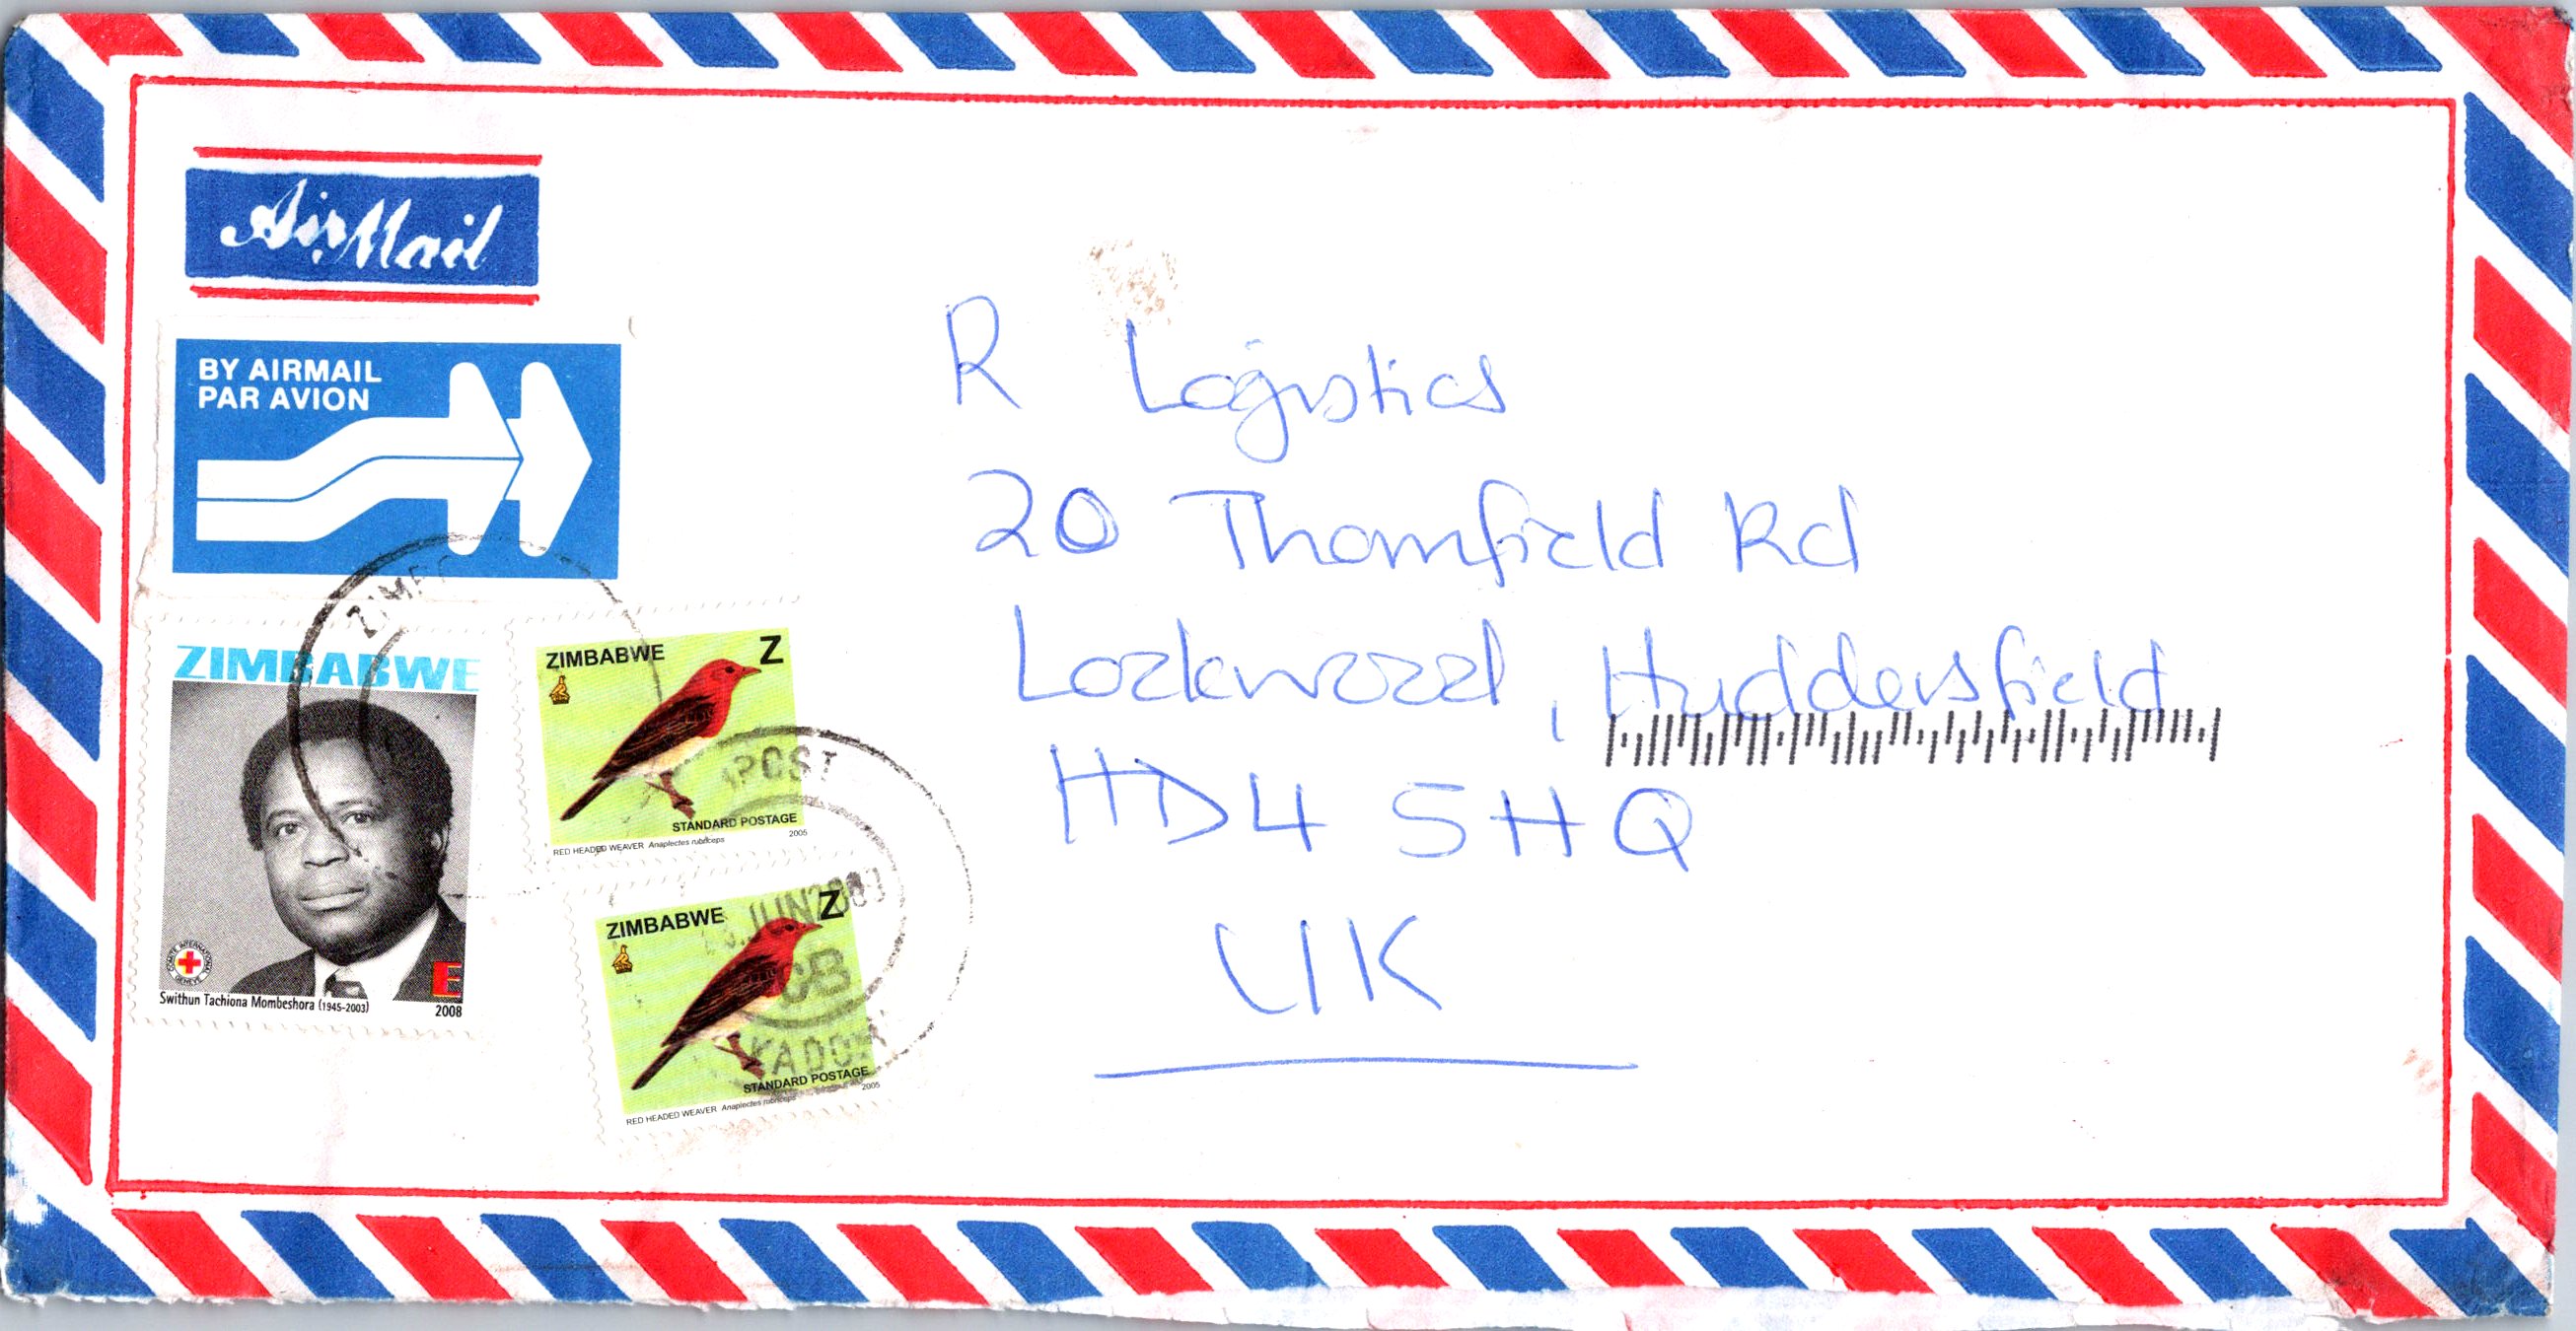 AirMail
BY AIRMAIL
PAR AVION
ZIMBABWE
COMITE INTERNATIONAL GENEVE
E
Swithun Tachiona Mombeshora (1945-2003)
2008
ZIMBABWE Z
STANDARD POSTAGE
RED HEADED WEAVER Anaplectes rubriceps 2005
ZIMBABWE Z
STANDARD POSTAGE
RED HEADED WEAVER Anaplectes rubriceps 2005
POST
JUN
CB
R Logistics
20 Thornfield Rd
Lockwood, Huddersfield
HD4 5HQ
UK